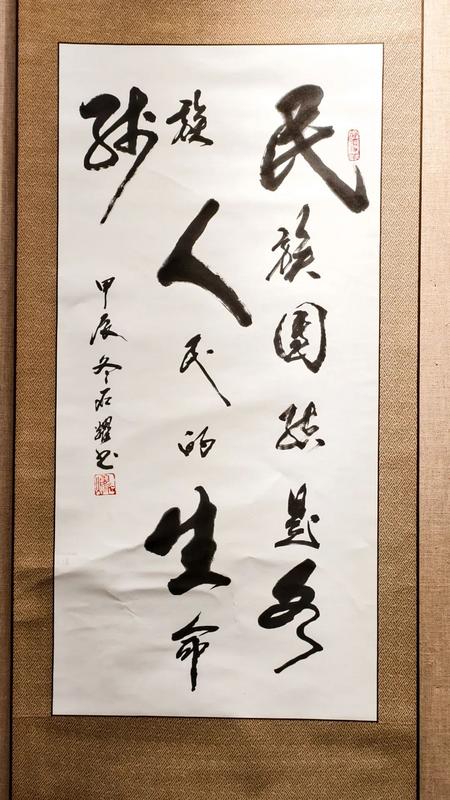 民族團结是各
族人民的生命
线
甲辰冬石耀书